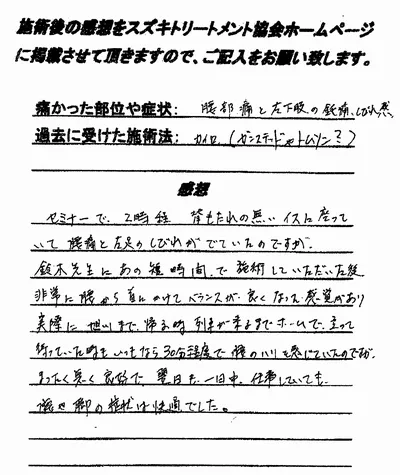 施術後の感想をスズキトリートメント協会ホームページ
に掲載させて頂きますので、ご記入をお願い致します。
痛かった部位や症状: 腰部痛と左下肢の鈍痛、しびれ感
過去に受けた施術法: カイロ (ガンステッドやトムソン?)
感想
セミナーで、2時程 背もたれの無いイスに座って
いて腰痛と左足のしびれがでていたのですが、
鈴木先生にあの短時間で施術していただいた後
非常に腰から首にかけてバランスが良くなった感覚があり
実際に 旭川まで 帰る時 列車が来るまでホームで、立って
待っていた時も、いつもなら30分程度で腰のハリも感じていたのですが、
まったく無く良好で 翌日も 一日中 仕事していても
腰や脚の症状は快適でした。